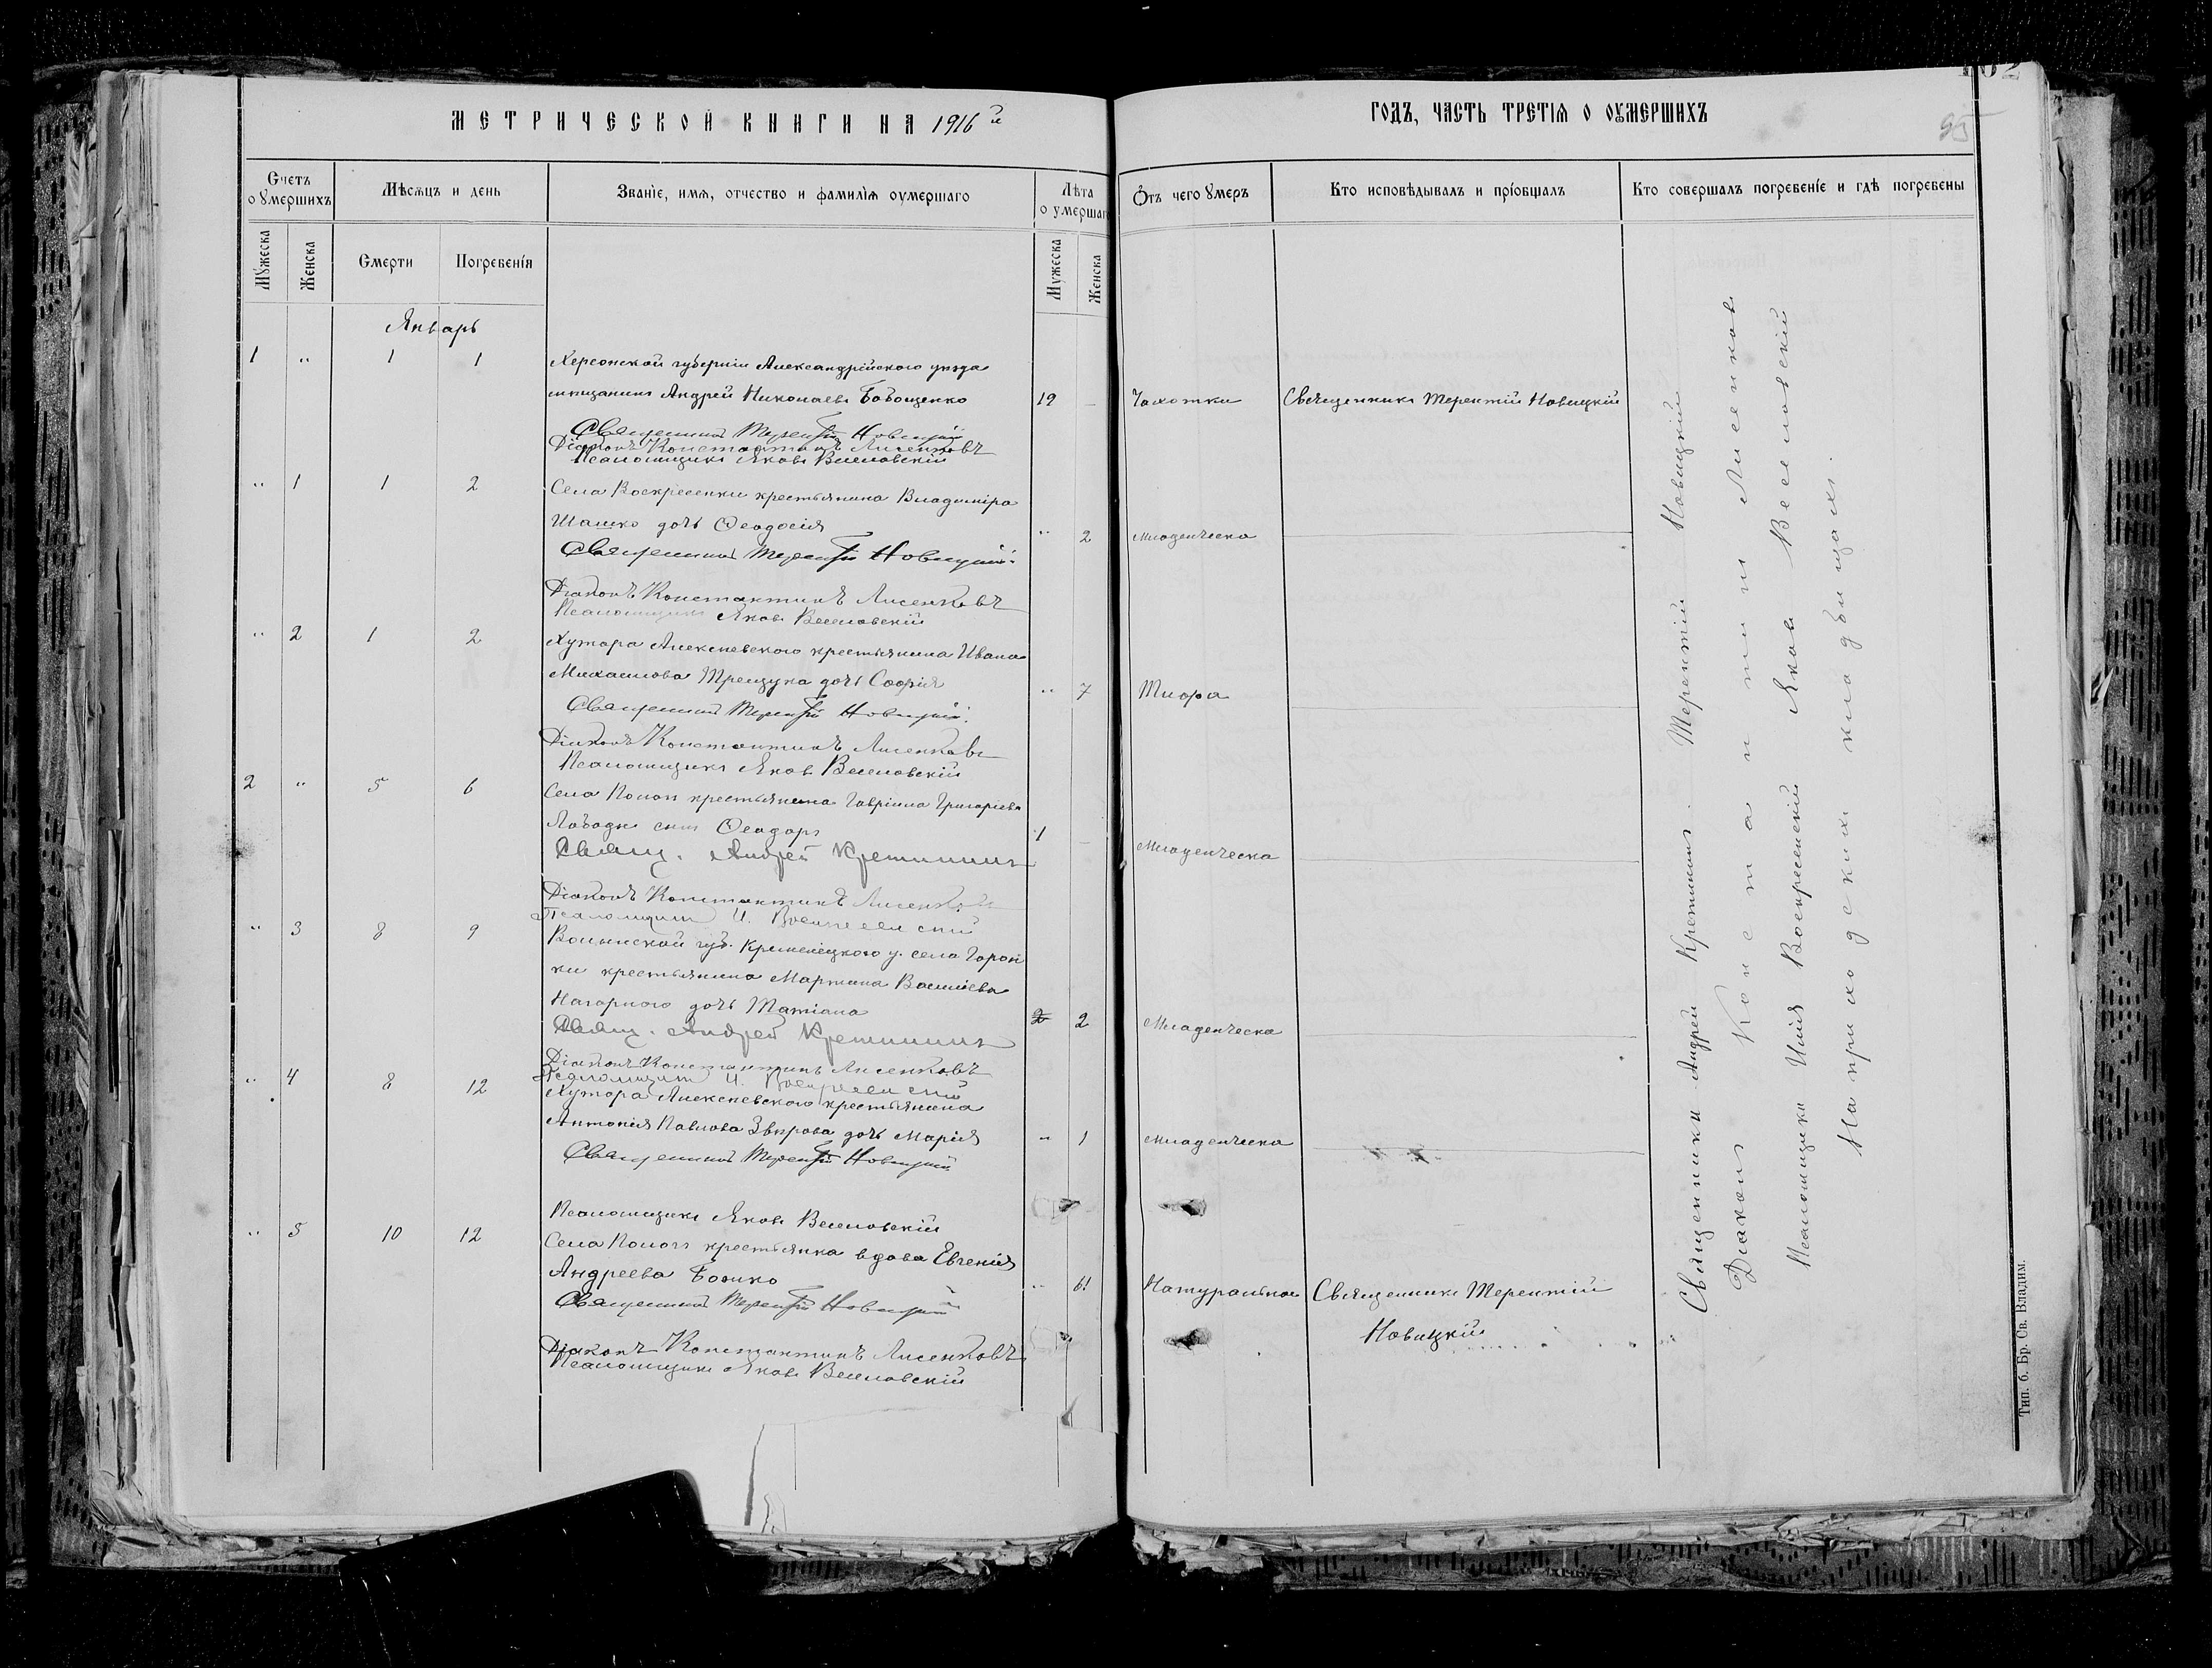 МЕТРИЧЕСКОЙ КНИГИ НА 1916й
Счетъ оумершихъ
Мѣсяцъ и день
Званіе, имя, отчество и фамилія оумершаго
Лѣта оумершаго
Мужеска
Женска
Смерти
Погребенія
Мужеска
Женска
Январь
1 " 1 1 Херсонской губерніи Александрійскаго уѣзда
мѣщанинъ Андрей Николаевъ Бабощенко 19 —
Священникъ Терентій Новицкій
Діаконъ Константинъ Лисенковъ
Псаломщикъ Яковъ Веселовскій
" 1 1 2 Села Воскресенки крестьянина Владиміра
Шашко дочь Ѳеодосія " 2
Священникъ Терентій Новицкій
Діаконъ Константинъ Лисенковъ
Псаломщикъ Яковъ Веселовскій
" 2 1 2 Хутора Алексѣевскаго крестьянина Ивана
Михаилова Трещука дочь Софія " 7
Священникъ Терентій Новицкій
Діаконъ Константинъ Лисенковъ
Псаломщикъ Яковъ Веселовскій
2 " 5 6 Села Пологъ крестьянина Гавріила Григоріева
Лободы сынъ Ѳеодоръ 1 —
Свящ. Андрей Кретининъ
Діаконъ Константинъ Лисенковъ
Псаломщикъ И. Воскресенскій
" 3 8 9 Волынской губ. Кременецкаго у. села Горон
ки крестьянина Мартина Василіева
Нагорнаго дочь Татіана 2 2
Свящ. Андрей Кретининъ
Діаконъ Константинъ Лисенковъ
Псаломщикъ И. Воскресенскій
" 4 8 12 Хутора Алексѣевскаго крестьянина
Антонія Павлова Звѣрова дочь Марія " 1
Священникъ Терентій Новицкій
Псаломщикъ Яковъ Веселовскій
" 5 10 12 Села Пологъ крестьянка вдова Евгенія
Андреева Божко " 61
Священникъ Терентій Новицкій
Діаконъ Константинъ Лисенковъ
Псаломщикъ Яковъ Веселовскій
95
ГОДЪ, ЧАСТЬ ТРЕТІЯ О ОУМЕРШИХЪ
Отъ чего умеръ
Кто исповѣдывалъ и пріобщалъ
Кто совершалъ погребеніе и гдѣ погребены
Чахотки Священникъ Терентій Новицкій
Младенческа
Тифа
Младенческа
Младенческа
Младенческа
Натуральною Священникъ Терентій
Новицкій
Священники Андрей Кретининъ. Терентій Новицкій
Діаконъ Константинъ Лисенковъ
Псаломщики Илія Воскресенскій Яковъ Веселовскій
На приходскихъ кладбищахъ.
Тип. б. Бр. Св. Владим.